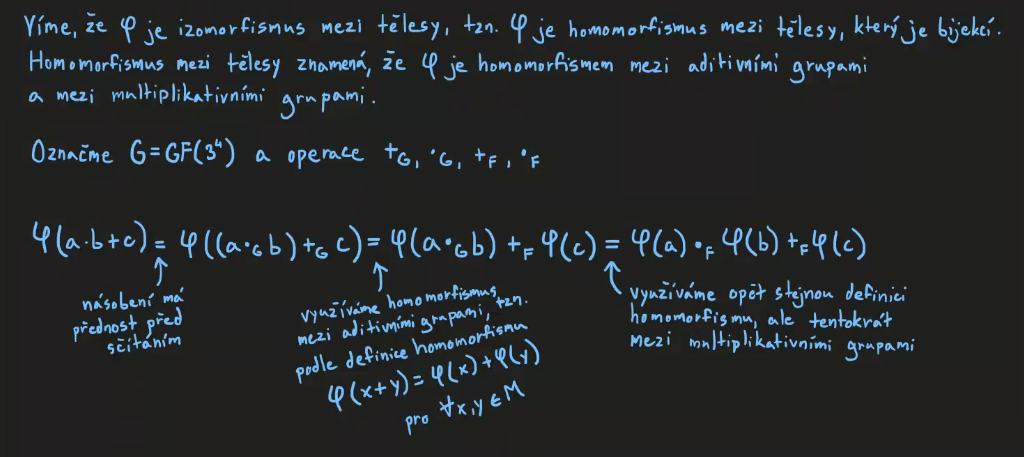 Víme, že φ je izomorfismus mezi tělesy, tzn. φ je homomorfismus mezi tělesy, který je bijekcí.
Homomorfismus mezi tělesy znamená, že φ je homomorfismem mezi aditivními grupami
a mezi multiplikativními grupami.
Označme G=GF(3⁴) a operace +_G, ·_G, +_F, ·_F
φ(a·b+c) = φ((a·_G b) +_G c) = φ(a·_G b) +_F φ(c) = φ(a) ·_F φ(b) +_F φ(c)
násobení má
přednost před
sčítáním
využíváme homomorfismus
mezi aditivními grupami, tzn.
podle definice homomorfismu
φ(x+y) = φ(x)+φ(y)
pro ∀x,y ∈ M
využíváme opět stejnou definici
homomorfismu, ale tentokrát
mezi multiplikativními grupami